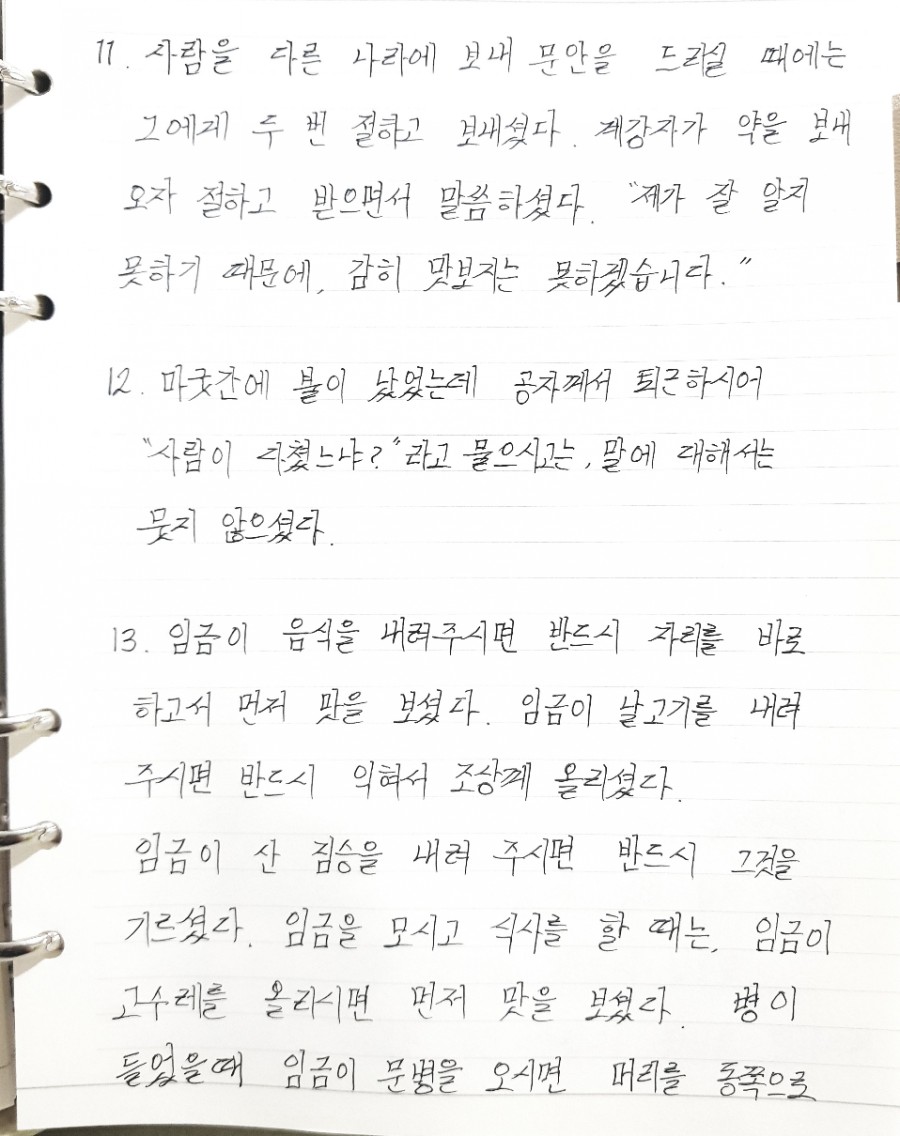 11. 사람을 다른 나라에 보내 문안을 드리실 때에는
그에게 두 번 절하고 보내셨다. 계강자가 약을 보내
오자 절하고 받으면서 말씀하셨다. "제가 잘 알지
못하기 때문에, 감히 맛보지는 못하겠습니다."
12. 마굿간에 불이 났었는데 공자께서 퇴근하시어
"사람이 다쳤느냐?"라고 물으시고는, 말에 대해서는
묻지 않으셨다.
13. 임금이 음식을 내려주시면 반드시 자리를 바로
하고서 먼저 맛을 보셨다. 임금이 날고기를 내려
주시면 반드시 익혀서 조상께 올리셨다.
임금이 산 짐승을 내려 주시면 반드시 그것을
기르셨다. 임금을 모시고 식사를 할 때는, 임금이
고수레를 올리시면 먼저 맛을 보셨다. 병이
들었을때 임금이 문병을 오시면 머리를 동쪽으로